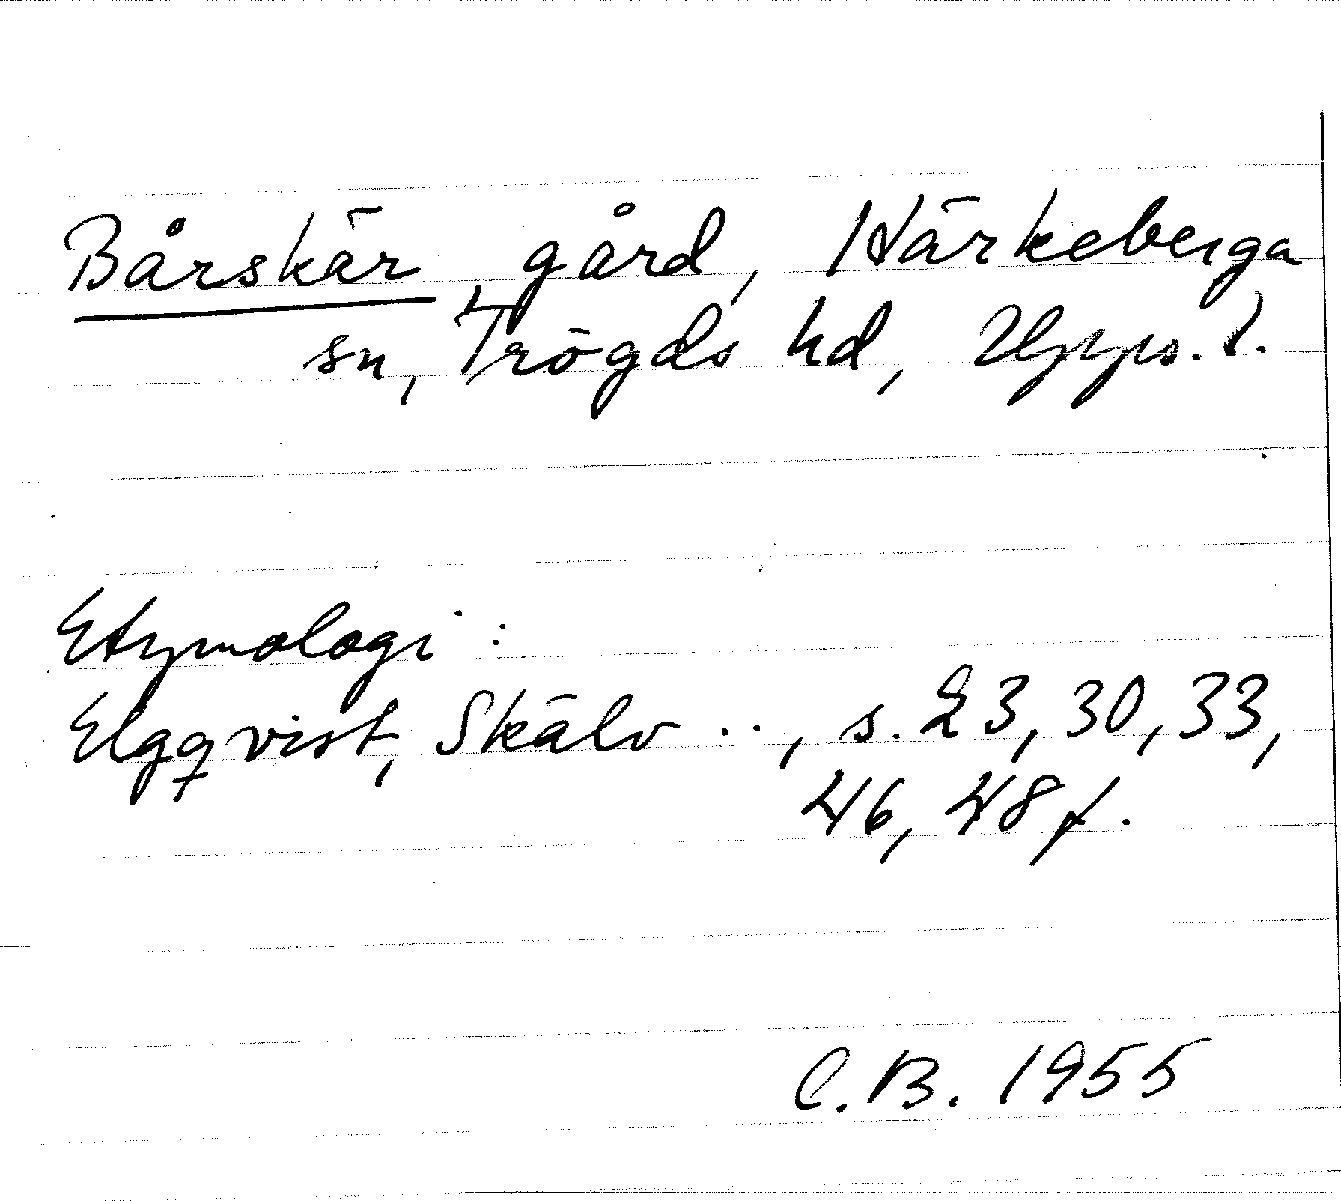 Bårskär gård, Härkeberga
sn, Trögds hd, Upps. l.
Etymologi:
Elgqvist, Skälv .., s. 23, 30, 33,
46, 48 f.
C.B. 1955